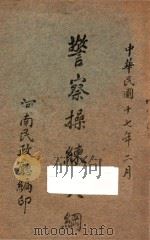 中華民國十七年二月
警察操練大綱
河南民政廳編印